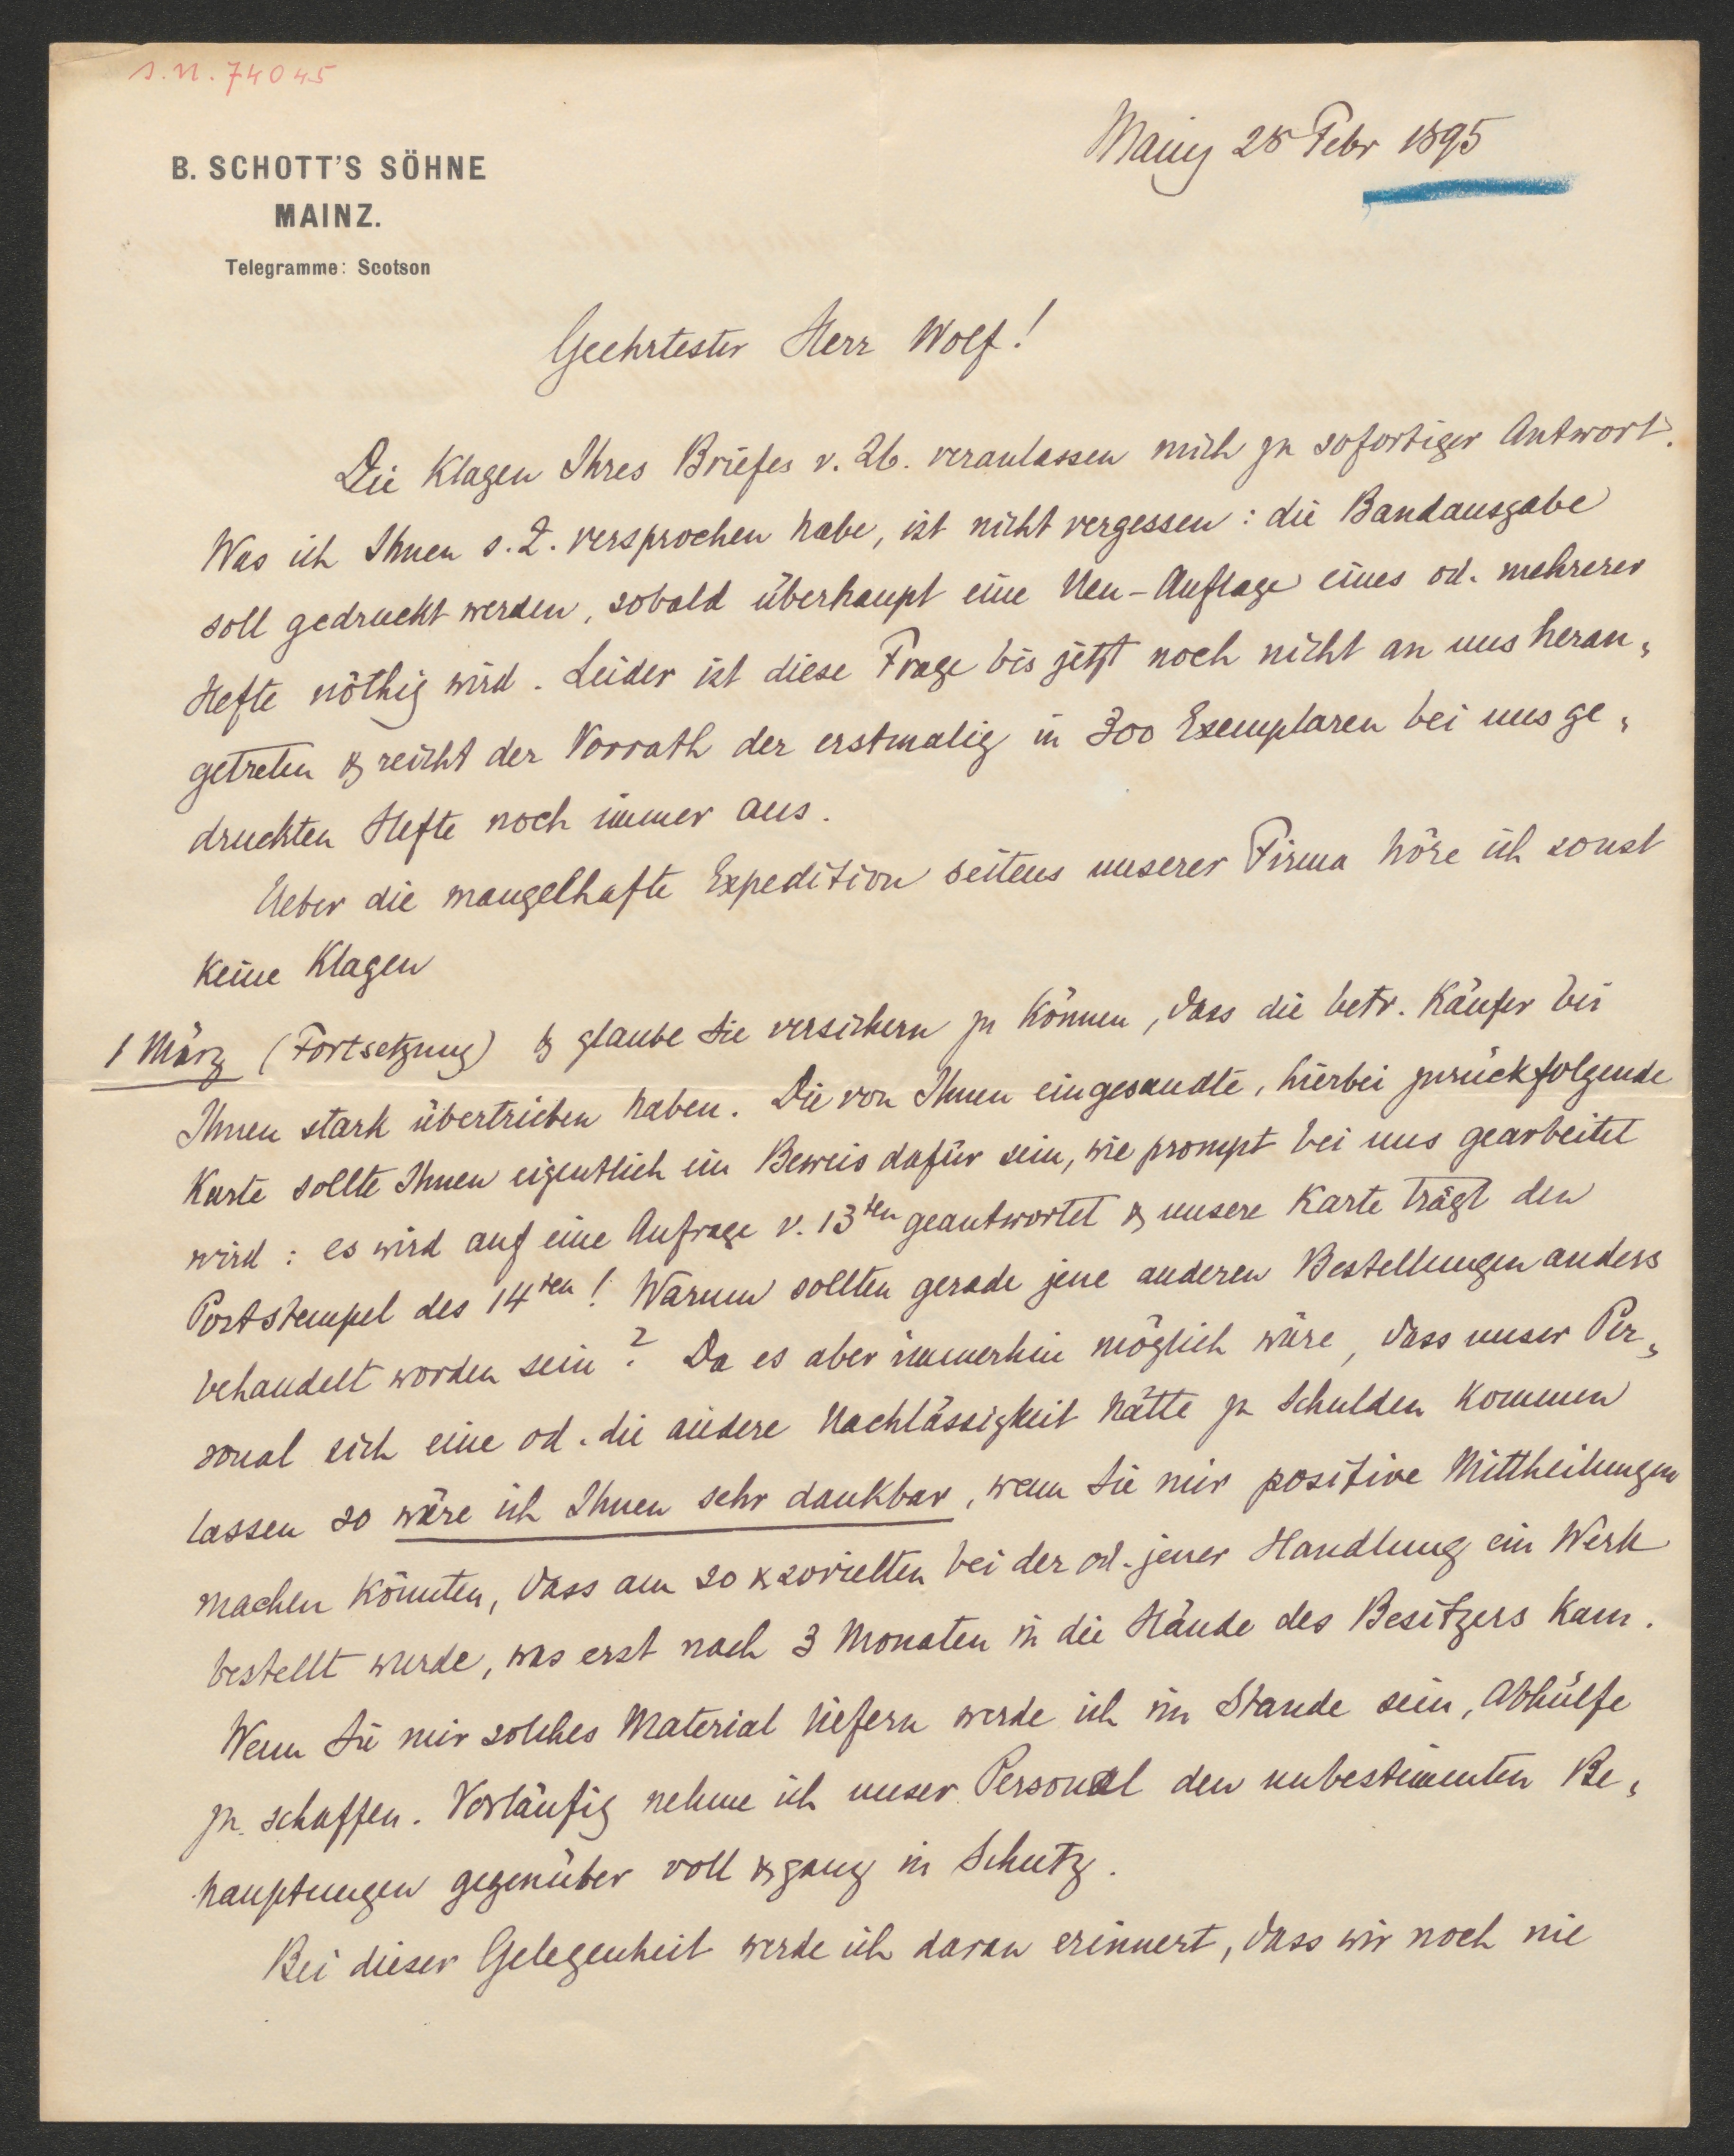 s.n. 74045
B. SCHOTT'S SÖHNE
MAINZ.
Telegramme: Scotson
Mainz 28 Febr 1895
Geehrtester Herr Wolf!
Die Klagen Ihres Briefes v. 26. veranlassen mich zu sofortiger Antwort.
Was ich Ihnen s. Z. versprochen habe, ist nicht vergessen: die Bandausgabe
soll gedruckt werden, sobald überhaupt eine Neu-Auflage eines od. mehrerer
Hefte nöthig wird. Leider ist diese Frage bis jetzt noch nicht an uns heran„
getreten & reicht der Vorrath der erstmalig in 300 Exemplaren bei uns ge„
druckten Hefte noch immer aus.
Ueber die mangelhafte Expedition seitens unserer Firma höre ich sonst
keine Klagen
1 März (Fortsetzung) & glaube Sie versichern zu können, dass die betr. Käufer bei
Ihnen stark übertrieben haben. Die von Ihnen eingesandte, hierbei zurückfolgende
Karte sollte Ihnen eigentlich ein Beweis dafür sein, wie prompt bei uns gearbeitet
wird: es wird auf eine Anfrage v. 13ten geantwortet & unsere Karte trägt den
Poststempel des 14ten! Warum sollten gerade jene anderen Bestellungen anders
behandelt worden sein? Da es aber immerhin möglich wäre, dass unser Per„
sonal sich eine od. die andere Nachlässigkeit hätte zu Schulden kommen
lassen so wäre ich Ihnen sehr dankbar, wenn Sie mir positive Mittheilungen
machen könnten, dass am so & sovielten bei der od. jener Handlung ein Werk
bestellt wurde, was erst nach 3 Monaten in die Hände des Besitzers kam.
Wenn Sie mir solches Material liefern werde ich im Stande sein, Abhülfe
zu schaffen. Vorläufig nehme ich unser Personal den unbestimmten Be„
hauptungen gegenüber voll & ganz in Schutz.
Bei dieser Gelegenheit werde ich daran erinnert, dass wir noch nie